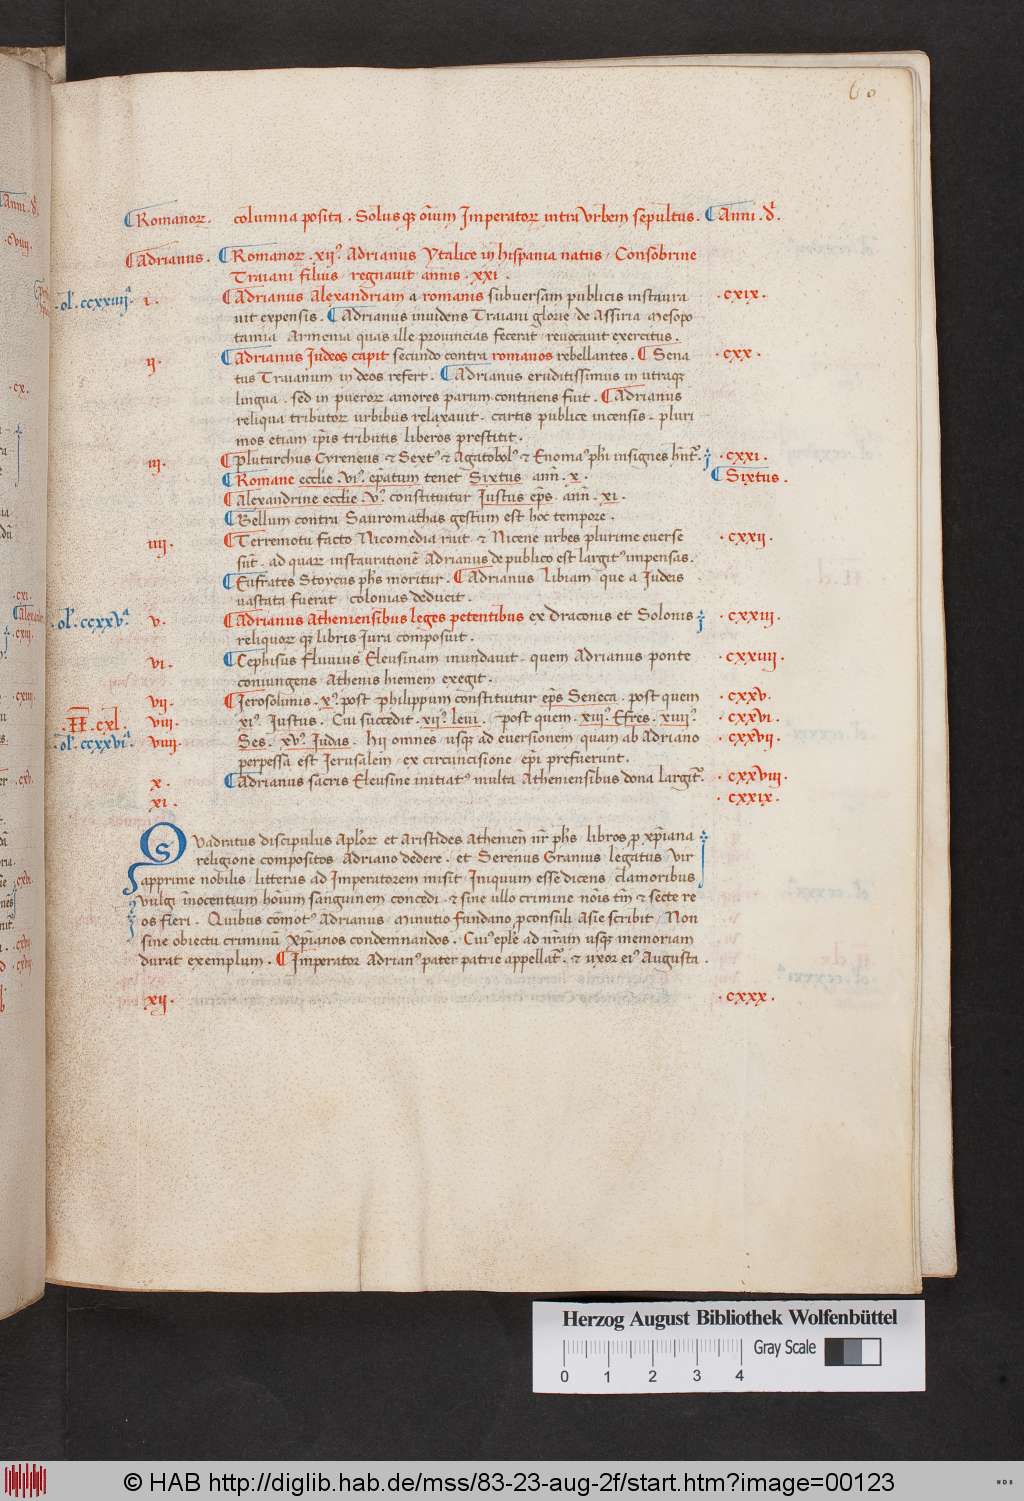 60
Romanoꝝ. columna posita. Solusqꝫ oı̄um Imperatoꝝ intra Urbem sepultus. Anni. d̄.
Adrianus. Romanoꝝ. xii⁹. Adrianus Ytalice in hispania natus. Consobrine
Traiani filius regnauit annis. xxi.
ol. ccxxiiii. i. Adrianus Alexandriam a romanis subuersam publicis instaura .cxix.
uit expensis. Adrianus inuidens Traiani glorie de Assiria mesopo
tamia Armenia quas ille prouincias fecerat reuocauit exercitus.
ii. Adrianus Iudeos capit secundo contra romanos rebellantes. Sena .cxx.
tus Traianum in deos refert. Adrianus eruditissimus in utraqꝫ
lingua. sed in pueroꝝ amores parum continens fuit. Adrianus
reliqua tributoꝝ urbibus relaxauit. cartis publice incensis. pluri
mos etiam ip̄is tributis liberos prestitit.
iii. Plutarchus Cyreneus & Sext⁹ & Agatobol⁹ & Enoma⁹ ph̄i insignes hn̄t. .cxxi.
Romane ecclie .vi⁹. ep̄atum tenet Sixtus ann̄. x. Sixtus.
Alexandrine ecclie .v⁹. constituitur Iustus ep̄s. ann̄. xi.
Bellum contra Sauromathas gestum est hoc tempore.
iiii. Terremotu facto Nicomedia ruit & Nicene urbes plurime euerse .cxxii.
sūt. ad quaꝝ instaurationē Adrianus de publico est largit⁹ impensas.
Eufrates Stoycus ph̄s moritur. Adrianus Libiam que a Iudeis
uastata fuerat colonias deducit.
ol. ccxxv. v. Adrianus Atheniensibus leges petentibus ex Draconis et Solonis .cxxiii.
reliquoꝝqꝫ libris Iura composuit.
vi. Cephisus fluuius Eleusinam inundauit. quem Adrianus ponte .cxxiiii.
coniungens Athenis hiemem exegit.
vii. Ierosolimis. x⁹. post philippum constituitur ep̄s Seneca. post quem .cxxv.
H. cxl. viii. xi⁹. Iustus. Cui succedit. xii⁹. leui. post quem. xiii⁹. Efres. xiiii⁹. .cxxvi.
ol. ccxxvi. viiii. Ses. xv⁹. Iudas. hii omnes usqꝫ ad euersionem quam ab Adriano .cxxvii.
perpessa est Ierusalem ex circuncisione ep̄i prefuerunt.
x. Adrianus sacris Eleusine initiat⁹ multa Atheniensibus dona largit. .cxxviii.
xi. .cxxix.
Quadratus discipulus Apl̄oꝝ et Aristides Athenien̄ nr̄ ph̄s libros p xp̄iana
religione compositos Adriano dedere. et Serenus Granius legatus uir
apprime nobilis litteras ad Imperatorem misit Iniquum esse dicens clamoribus
uulgi inocentium hoı̄um sanguinem concedi & sine ullo crimine noı̄s tm̄ & secte re
os fieri. Quibus cōmot⁹ Adrianus Minutio fundano pconsuli Asie scribit Non
sine obiectu criminū xp̄ianos condemnandos. Cui⁹ eple ad nr̄am usqꝫ memoriam
durat exemplum. Imperator Adrian⁹ pater patrie appellat. & uxor ei⁹ Augusta.
xii. .cxxx.
Herzog August Bibliothek Wolfenbüttel
Gray Scale
0 1 2 3 4
© HAB http://diglib.hab.de/mss/83-23-aug-2f/start.htm?image=00123